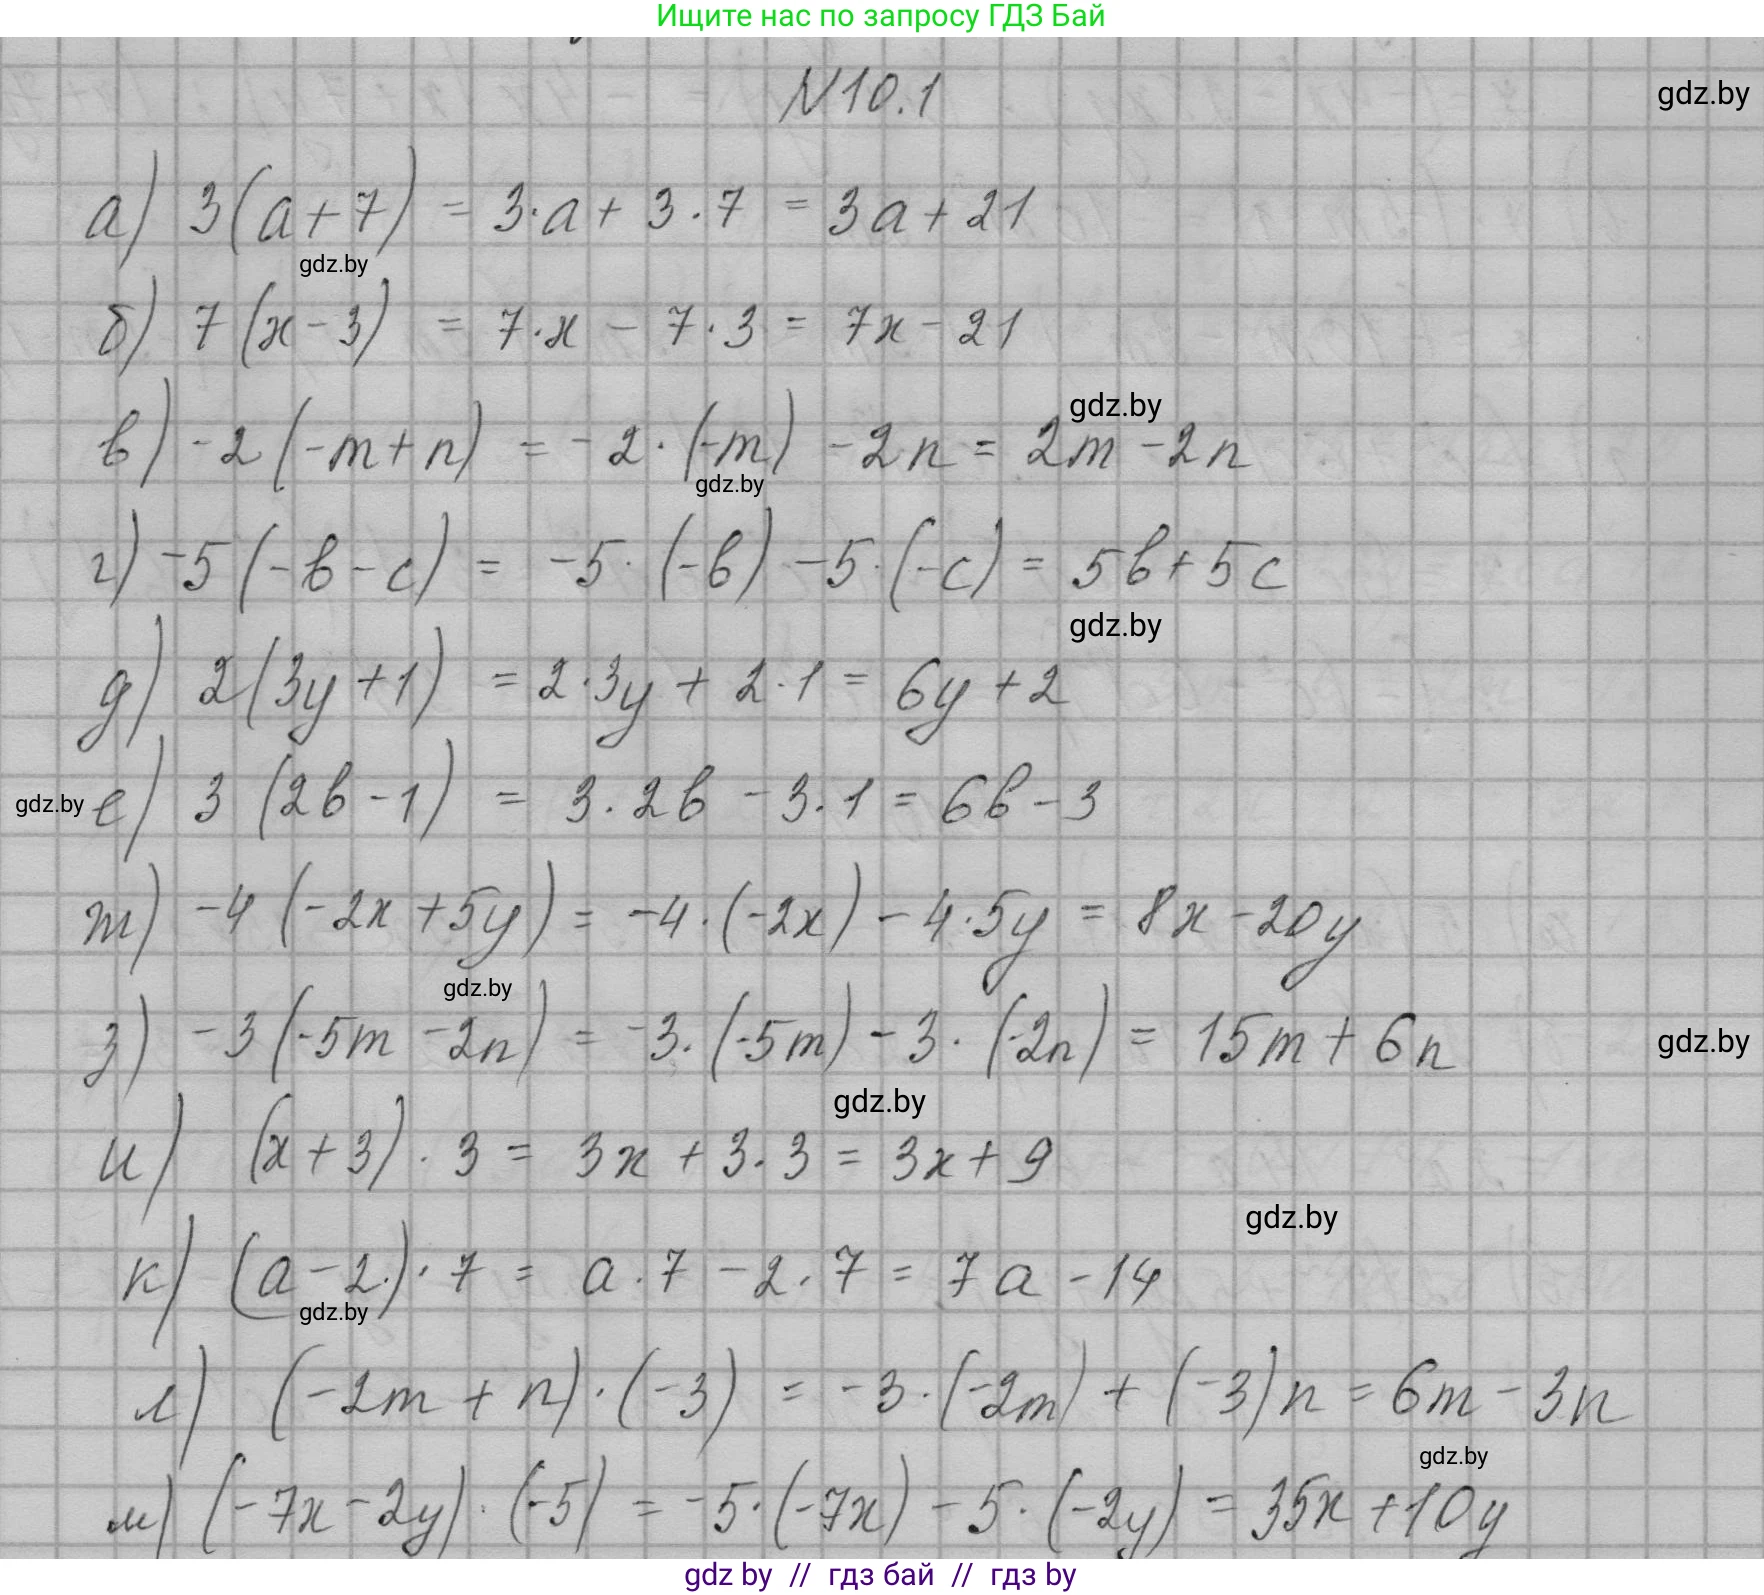 Ищите нас по запросу ГДЗ Бай
N10.1
gdz.by
а) 3(a+7) = 3·a + 3·7 = 3a + 21
gdz.by
б) 7(x-3) = 7·x - 7·3 = 7x - 21
gdz.by
в) -2(-m+n) = -2·(-m) - 2n = 2m - 2n
gdz.by
г) -5(-b-c) = -5·(-b) -5·(-c) = 5b + 5c
gdz.by
д) 2(3y+1) = 2·3y + 2·1 = 6y + 2
gdz.by
е) 3(2b-1) = 3·2b - 3·1 = 6b - 3
ж) -4(-2x+5y) = -4·(-2x) - 4·5y = 8x - 20y
gdz.by
з) -3(-5m-2n) = -3·(-5m) - 3·(-2n) = 15m + 6n
gdz.by
gdz.by
и) (x+3)·3 = 3x + 3·3 = 3x + 9
gdz.by
к) (a-2)·7 = a·7 - 2·7 = 7a - 14
gdz.by
л) (-2m+n)·(-3) = -3·(-2m) + (-3)n = 6m - 3n
gdz.by
м) (-7x-2y)·(-5) = -5·(-7x) - 5·(-2y) = 35x + 10y
gdz by // гдз бай // гдз by